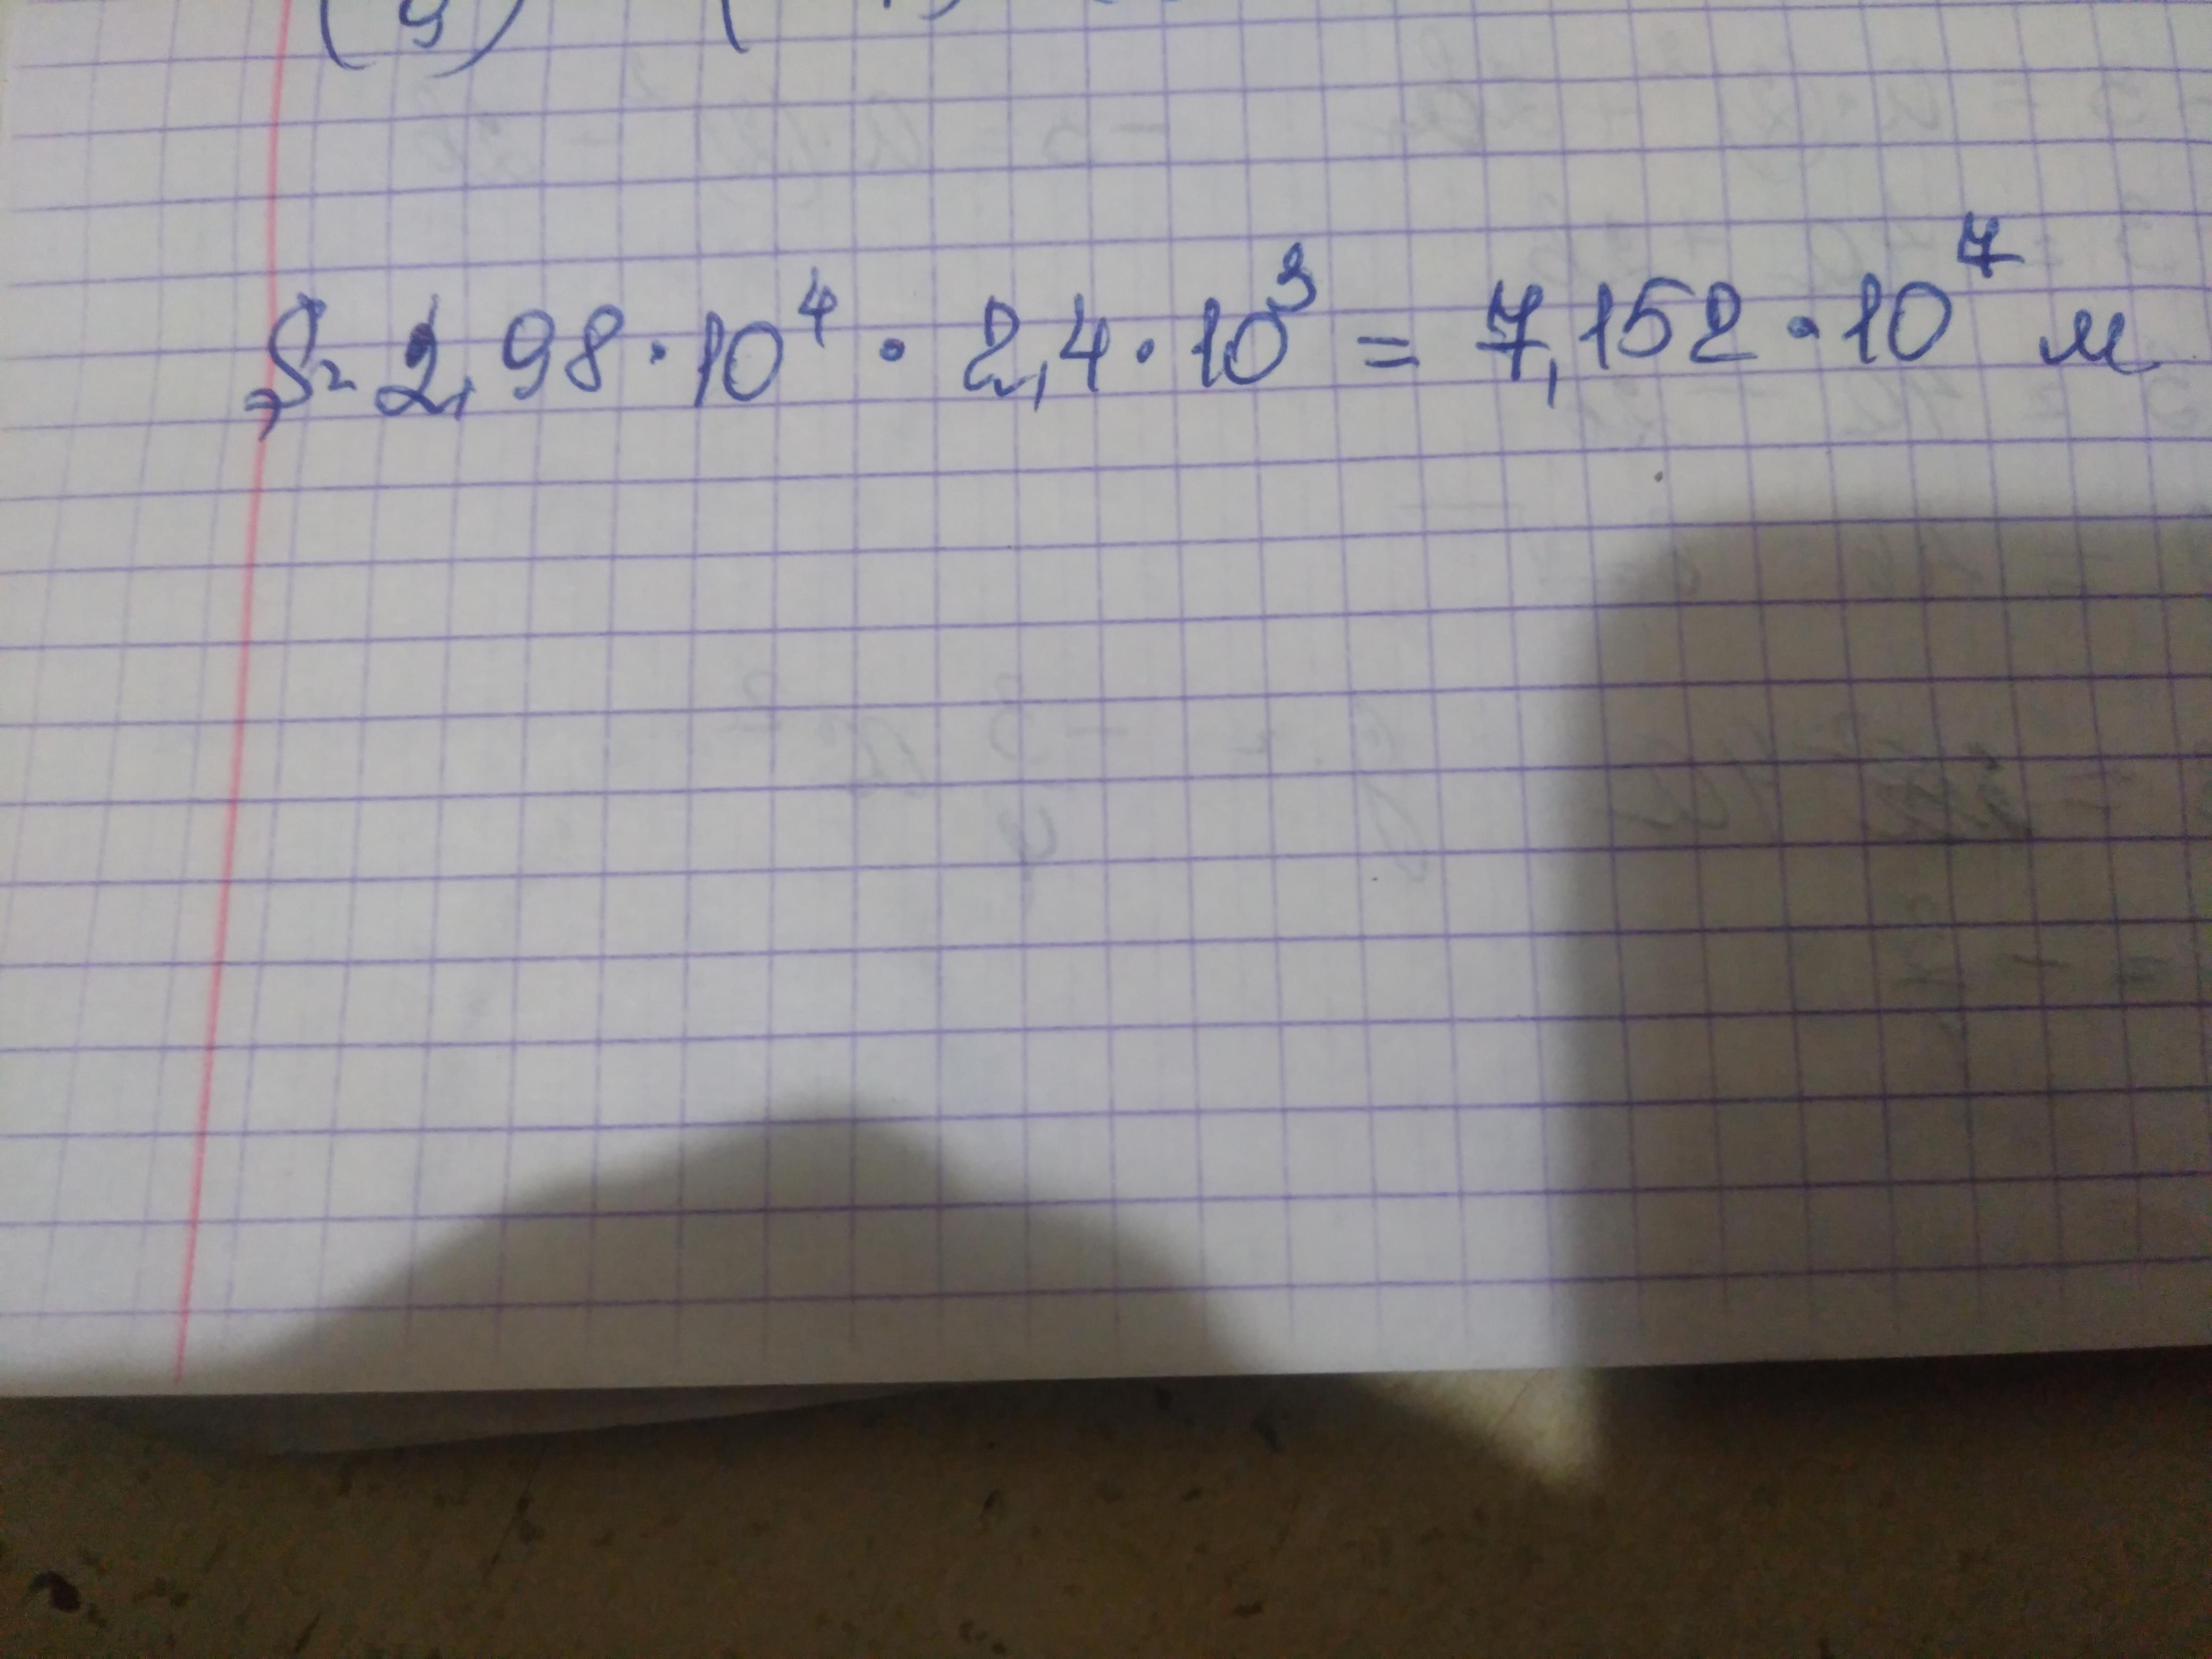 S = 2,98 · 10⁴ · 2,4 · 10³ = 7,152 · 10⁷ м